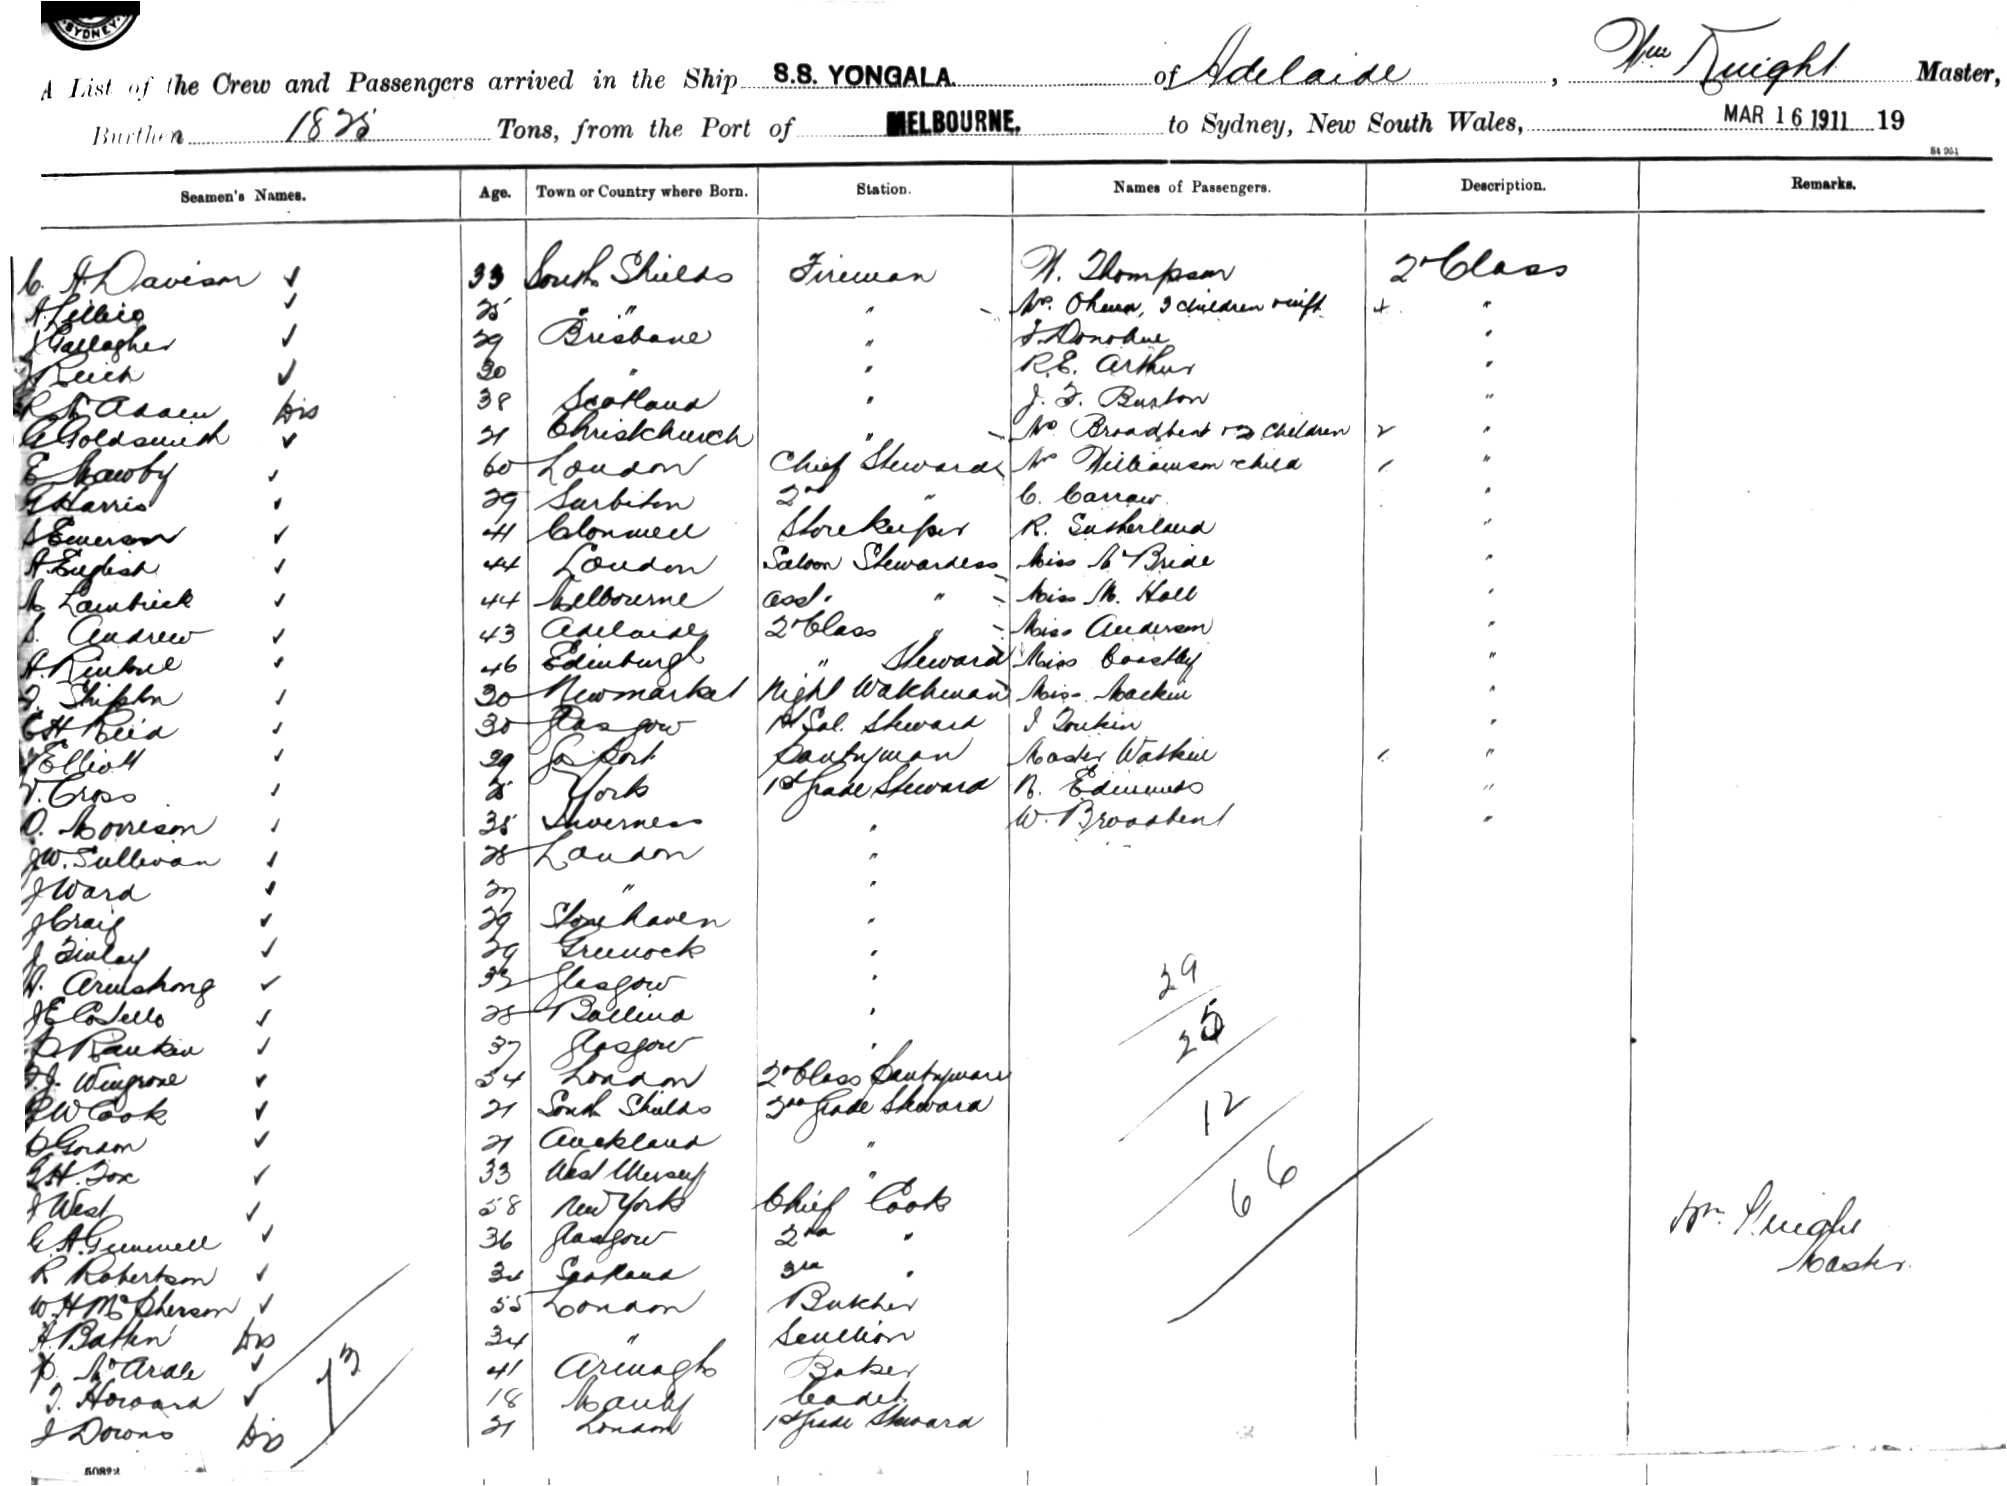 SYDNEY
A List of the Crew and Passengers arrived in the Ship S.S. YONGALA. of Adelaide, Wm Knight Master,
Burthen 1825 Tons, from the Port of MELBOURNE. to Sydney, New South Wales, MAR 16 1911 19
Seamen's Names. Age. Town or Country where Born. Station. Names of Passengers. Description. Remarks.
C. A. Davison 33 South Shields Fireman W. Thompson 2nd Class
A. Lillie 25 " " " Mrs 3 children " "
J Gallagher 29 Brisbane " J. Donohue "
Reich 30 " " R.E. Arthur "
R McAdam Dis 38 Scotland " J. F. Burton "
G Goldsmith 21 Christchurch " Mrs Broadbent + 2 children 2 "
E Mawby 60 London Chief Steward Mrs Williamson child "
G Harris 29 Surbiton 2nd " C. "
S Emerson 41 Clonmell Storekeeper R. Sutherland "
A English 44 London Saloon Stewardess Miss McBride "
M Lambrick 44 Melbourne asst. " Miss M. Hall "
S. Andrew 43 Adelaide 2nd Class " Miss Anderson "
A. 46 Edinburgh " Steward Miss "
Shipton 30 Newmarket Night Watchman Miss Mackin "
C H Reid 30 Glasgow 1st Sal. Steward J "
Elliott 39 Gosport Pantryman Master Watkin "
V. Cross 25 York 1st Grade Steward R. Edmunds "
O. Morrison 35 Inverness " W. Broadbent "
J W. Sullivan 28 London "
J Ward 27 " "
J Craig 29 Stonehaven "
J Finlay 29 Greenock "
Armstrong 32 Glasgow " 29
J E Costello 28 Ballina "
Rankin 37 Glasgow " 25
F.J. Wingrove 34 London 2nd Class Pantryman
G W Cook 21 South Shields 2nd Grade Steward 12
D Gordon 21 Auckland "
G H. Fox 33 West Mersey " 66
J West 58 New York Chief Cook
G. A. Gummell 36 Glasgow 2nd " Wm. Knight
R Robertson 34 Scotland 3rd " Master.
W. H McPherson 55 London Butcher
A Batten Dis 34 " Scullion
D. McArdle 41 Armagh Baker
T. Howard 18 Manly Cadet. 73
J Downs Dis 21 London 1st Grade Steward